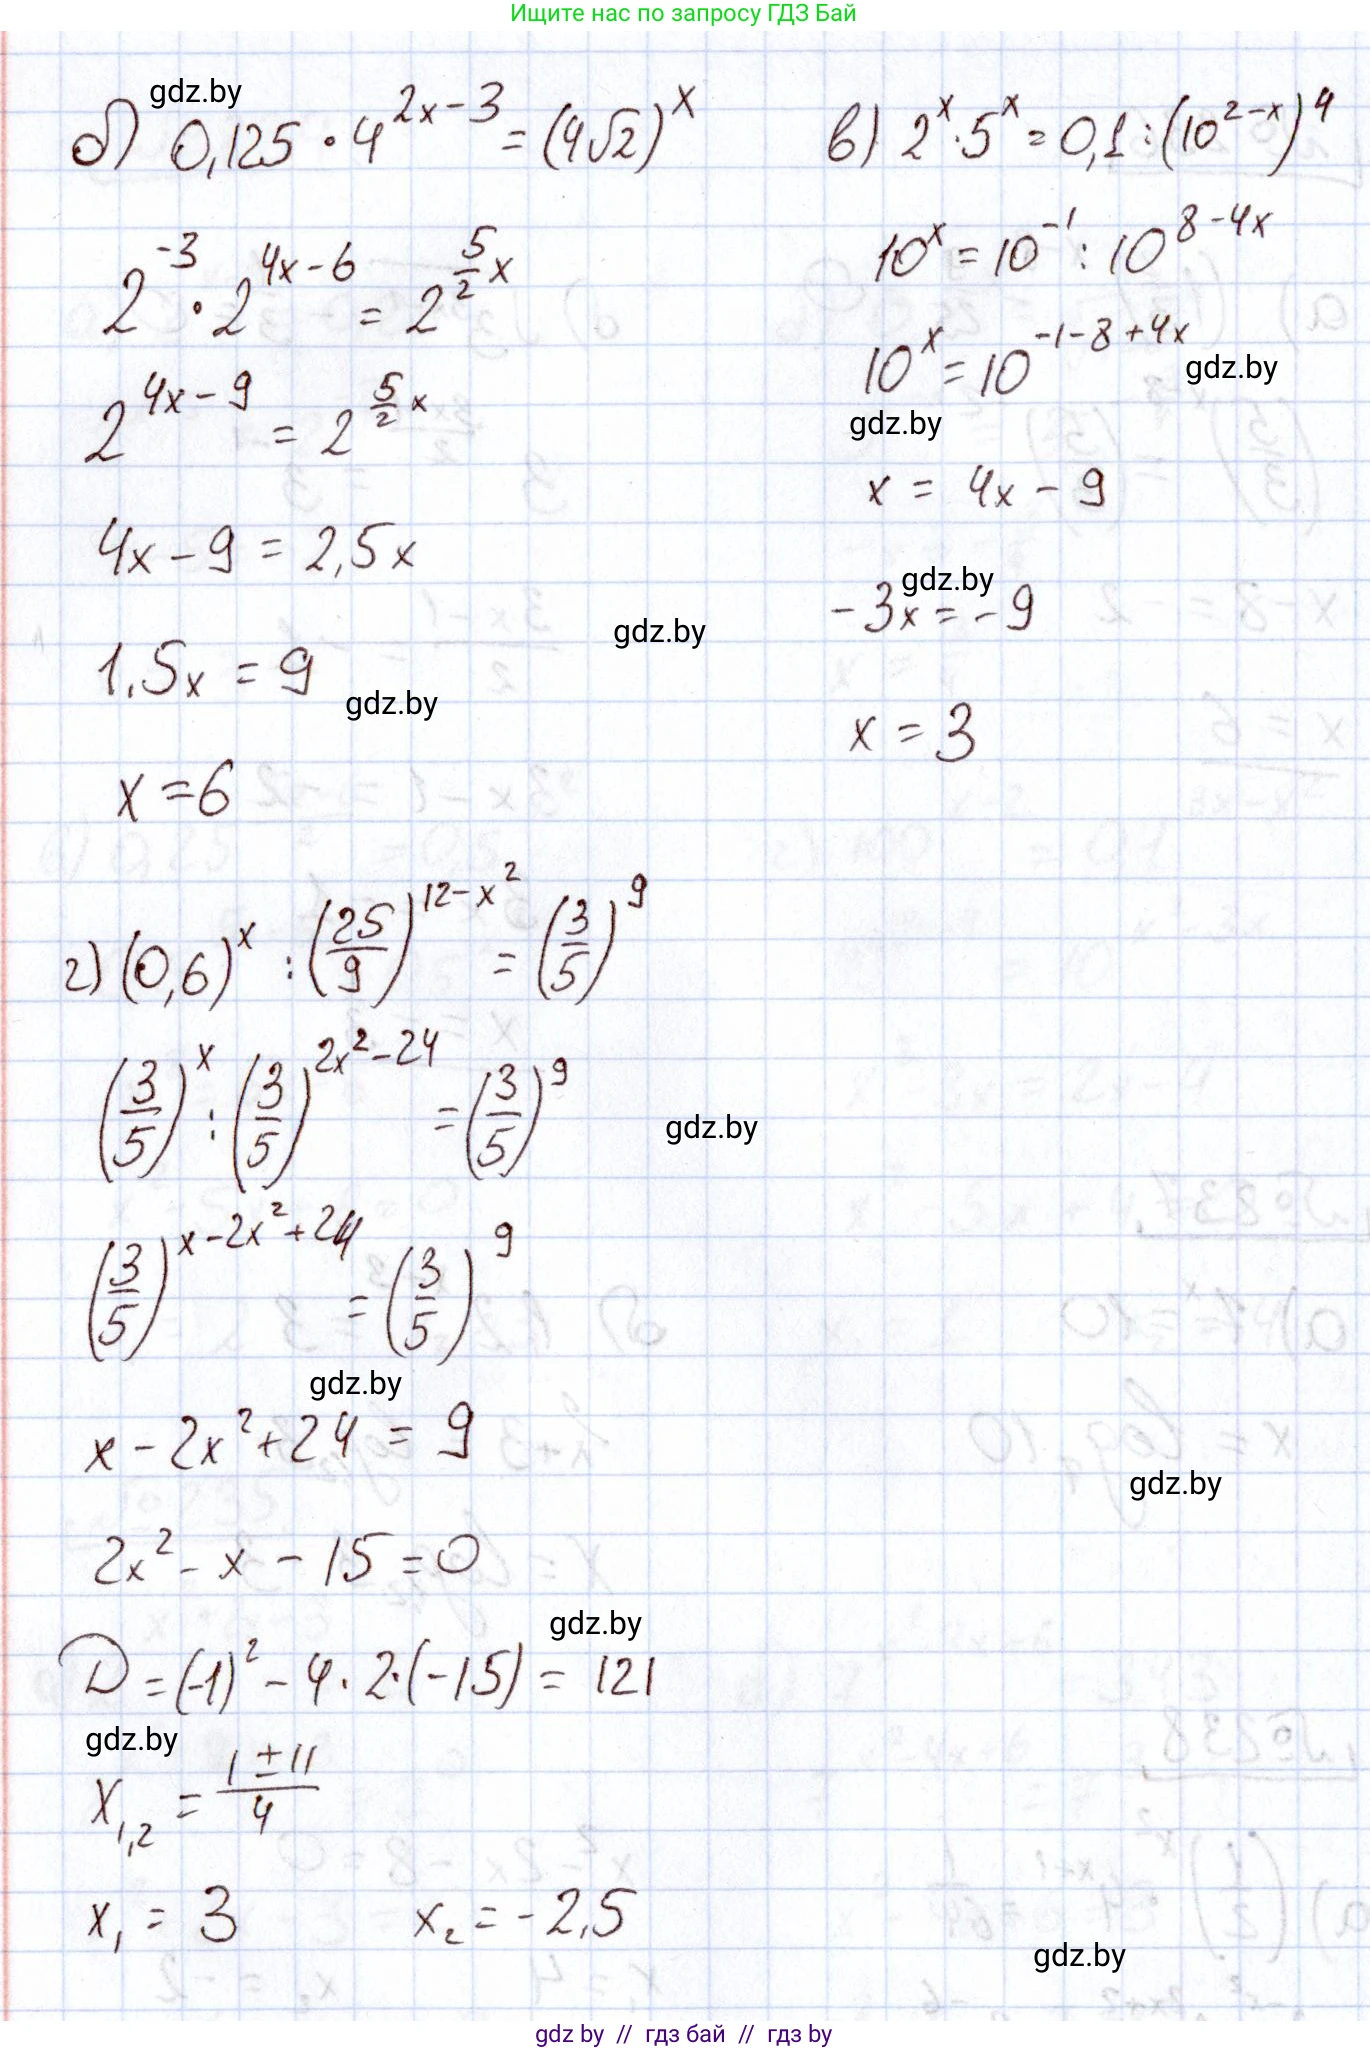 Ищите нас по запросу ГДЗ Бай
gdz.by
б) 0,125 · 4^{2x-3} = (4√2)^x
2^{-3} · 2^{4x-6} = 2^{5/2 x}
2^{4x-9} = 2^{5/2 x}
4x - 9 = 2,5x
1,5x = 9
gdz.by
gdz.by
x = 6
в) 2^x · 5^x = 0,1 : (10^{2-x})^4
10^x = 10^{-1} : 10^{8-4x}
10^x = 10^{-1-8+4x}
gdz.by
gdz.by
x = 4x - 9
gdz.by
-3x = -9
x = 3
г) (0,6)^x : (25/9)^{12-x^2} = (3/5)^9
(3/5)^x : (3/5)^{2x^2-24} = (3/5)^9
gdz.by
(3/5)^{x-2x^2+24} = (3/5)^9
gdz.by
x - 2x^2 + 24 = 9
gdz.by
2x^2 - x - 15 = 0
gdz.by
D = (-1)^2 - 4 · 2 · (-15) = 121
gdz.by
x_{1,2} = (1 ± 11)/4
x_1 = 3 x_2 = -2,5
gdz.by
gdz by // гдз бай // гдз by